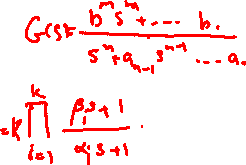 G(s) = \frac{b^m s^m + \cdots b.}{s^n + a_{n-1} s^{n-1} \cdots a.}
= k \prod_{i=1}^{k} \frac{\beta_i s + 1}{\alpha_i s + 1}.